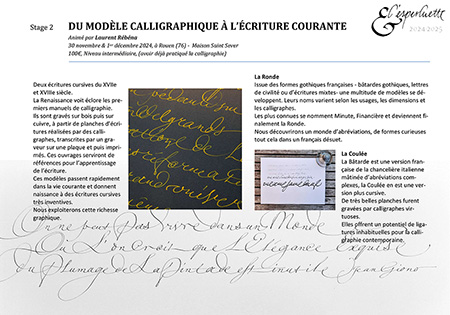 Stage 2
DU MODÈLE CALLIGRAPHIQUE À L'ÉCRITURE COURANTE
Animé par Laurent Rébéna
30 novembre & 1er décembre 2024, à Rouen (76) - Maison Saint Sever
100€, Niveau intermédiaire, (avoir déjà pratiqué la calligraphie)
& l'esperluette
2024 2025
Deux écritures cursives du XVIIe
et XVIIIe siècle.
La Renaissance voit éclore les pre-
miers manuels de calligraphie.
Ils sont gravés sur bois puis sur
cuivre, à partir de planches d'écri-
tures réalisées par des calli-
graphes, transcrites par un gra-
veur sur une plaque et puis impri-
més. Ces ouvrages serviront de
références pour l'apprentissage
de l'écriture.
Ces modèles passent rapidement
dans la vie courante et donnent
naissance à des écritures cursives
très inventives.
Nous exploiterons cette richesse
graphique.
La Ronde
Issue des formes gothiques françaises - bâtardes gothiques, lettres
de civilité ou d'écritures mixtes- une multitude de modèles se dé-
veloppent. Leurs noms varient selon les usages, les dimensions et
les calligraphes.
Les plus connues se nomment Minute, Financière et deviennent fi-
nalement la Ronde.
Nous découvrirons un monde d'abréviations, de formes curieuses
tout cela dans un français désuet.
La Coulée
La Bâtarde est une version fran-
çaise de la chancelière italienne
mâtinée d'abréviations com-
plexes, la Coulée en est une ver-
sion plus cursive.
De très belles planches furent
gravées par calligraphes vir-
tuoses.
Elles offrent un potentiel de liga-
tures inhabituelles pour la calli-
graphie contemporaine.
On ne peut pas vivre dans un Monde
Où l'on croit que L'Elégance exquise
du Plumage de La pintade est inutile Jean Giono